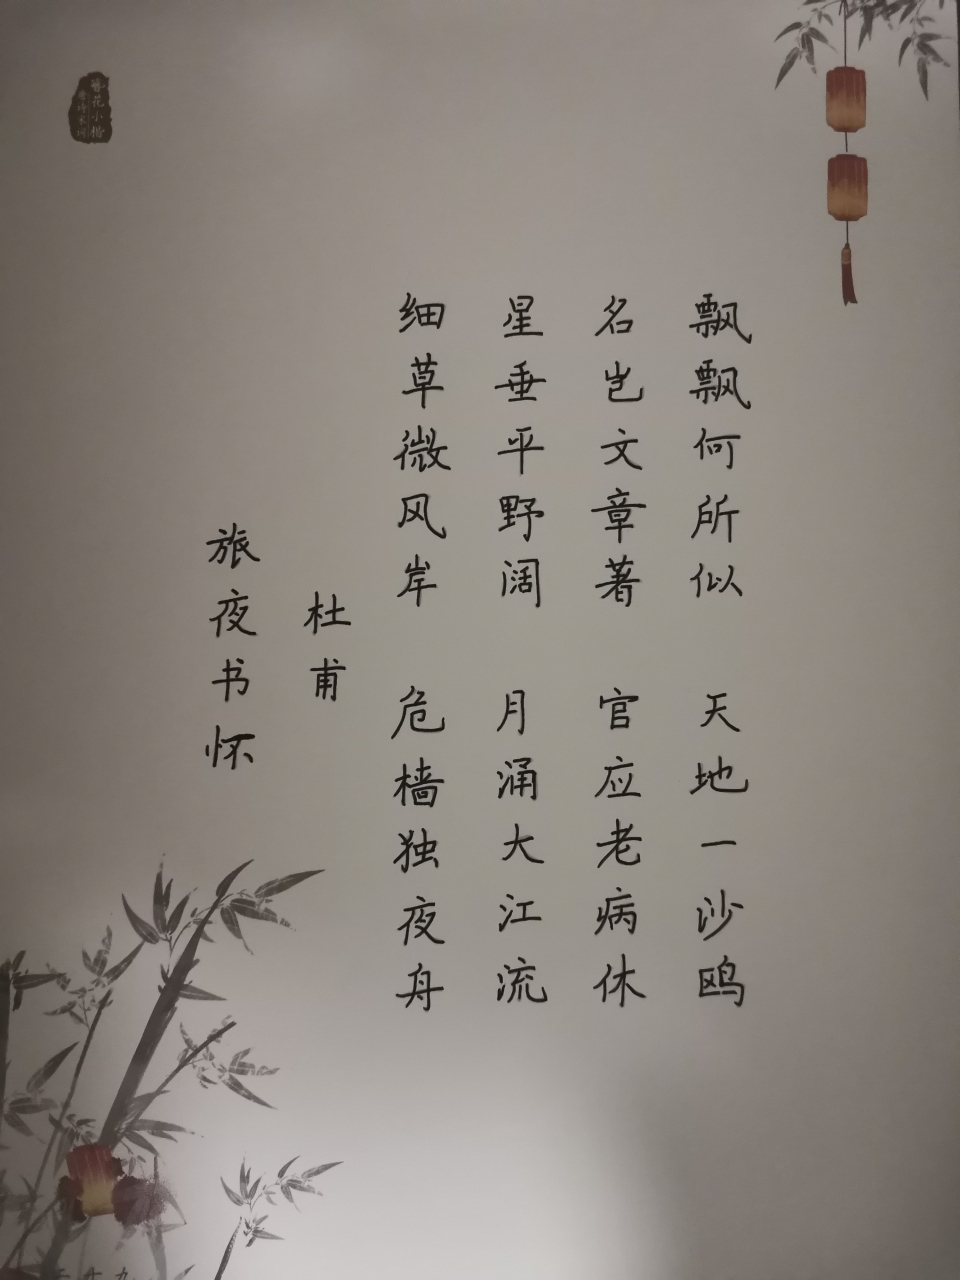 旅夜书怀
杜甫
细草微风岸 危樯独夜舟
星垂平野阔 月涌大江流
名岂文章著 官应老病休
飘飘何所似 天地一沙鸥
簪花小楷
唐诗宋词